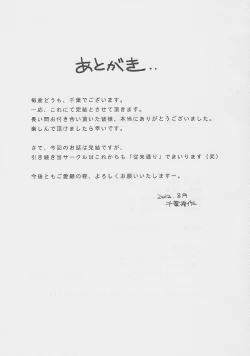 あとがき..
毎度どうも、千葉でございます。
一応、これにて完結とさせて頂きます。
長い間お付き合い頂いた皆様、本当にありがとうございました。
楽しんで頂けましたら幸いです。
さて、今回のお話は完結ですが、
引き続き当サークルはこれからも「従来通り」でまいります(笑)
今後ともご愛顧の程、よろしくお願いいたしますー。
2012. 8月
千葉